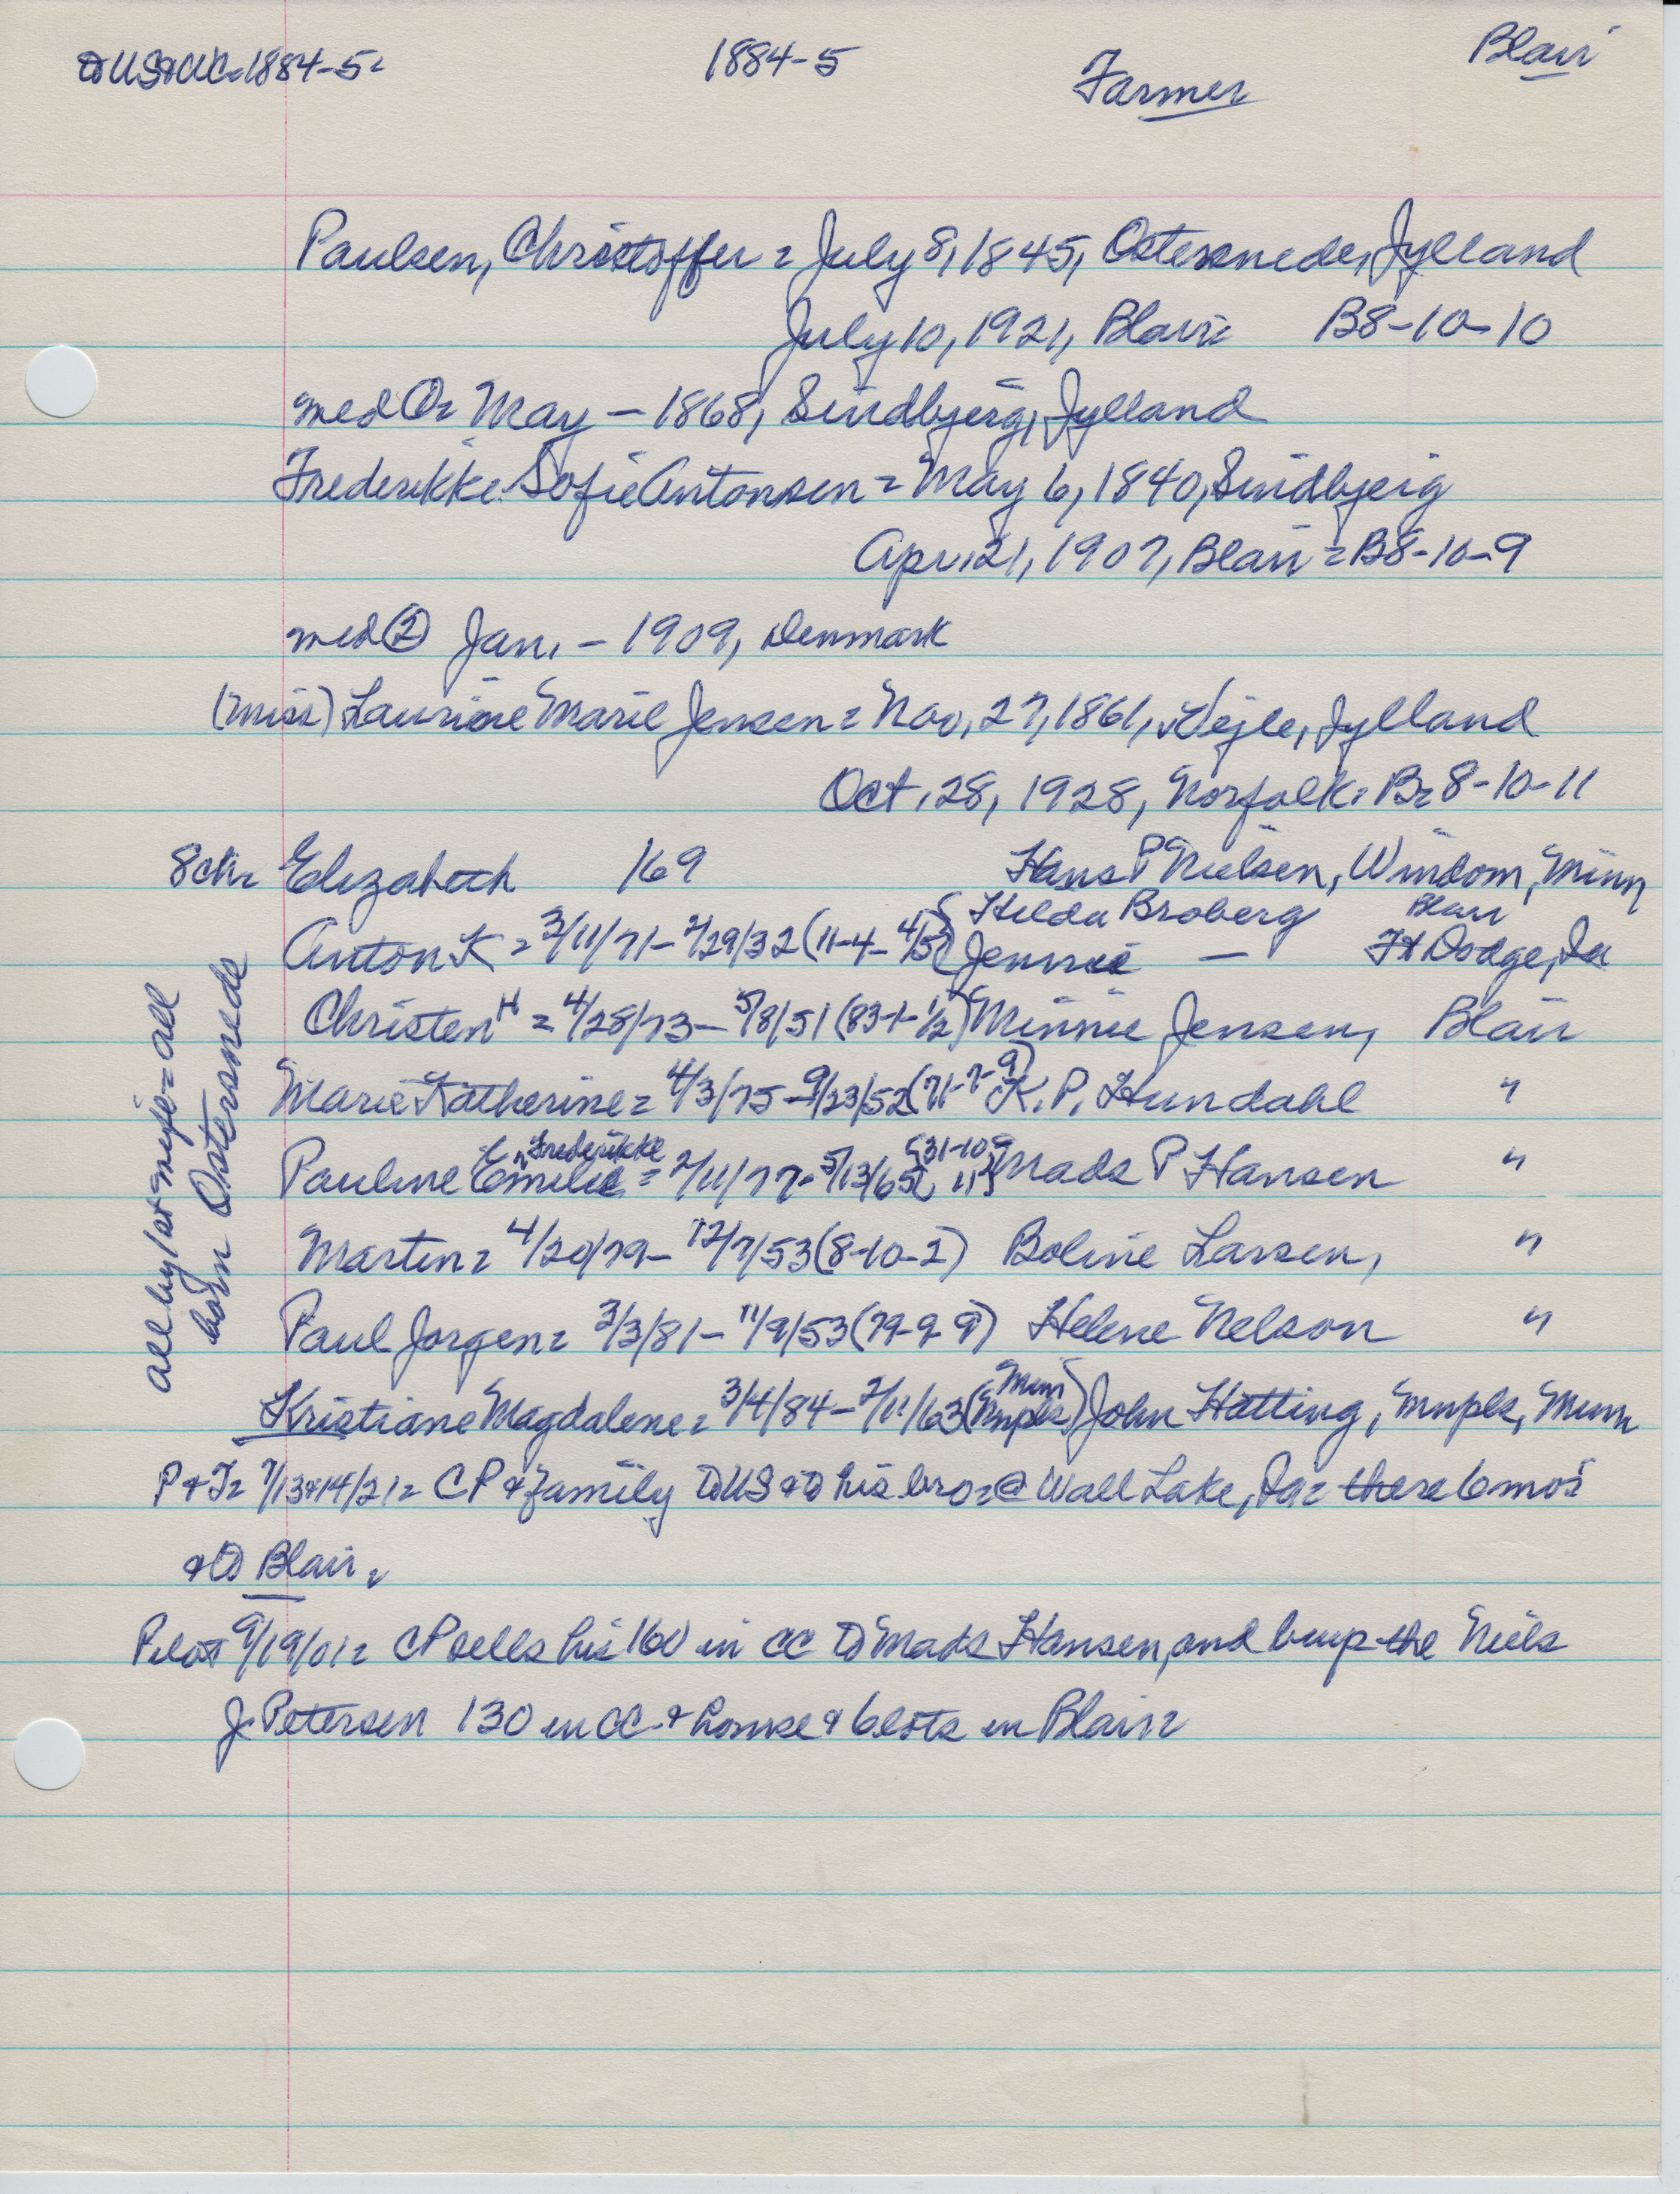 to US & WC = 1884-5 = 1884-5 Farmer Blair
Paulsen, Christoffer = July 8, 1845, Ostersnede, Jylland
July 10, 1921, Blair = B8-10-10
med ① = May - 1868, Sindbjerg, Jylland
Frederikke Sofie Antonsen = May 6, 1840, Sindbjerg
Apr. 21, 1907, Blair = B8-10-9
med ② Jan. - 1909, Denmark
(miss) Laurine Marie Jensen = Nov. 27, 1861, Vejle, Jylland
Oct. 28, 1928, Norfolk = B = 8-10-11
8 ch = Elizabeth 169 Hans P Nielsen, Windom, Minn
{ Hilda Broberg Blair
Anton K = 3/11/71 - 2/29/32 (11-4-4/5) Jennie — Ft Dodge, Ia
Christen H = 4/28/73 - 5/8/51 (83-1-1/2) Minnie Jensen, Blair
Marie Katherine = 4/3/75 - 9/23/52 (71-7-9) K. P. Hundahl "
Pauline Emilie Frederikke = 2/11/77 - 5/13/65 {31-10-11} Mads P Hansen "
Martin = 4/20/79 - 12/7/53 (8-10-2) Boline Larsen, "
Paul Jorgen = 3/3/81 - 11/9/53 (79-9-9) Helene Nelson "
Kristiane Magdalene = 3/4/84 - 2/11/63 (Mnpls Minn) John Hatting, Mnpls, Minn
all by 1st wife = all
born Ostersnede
P & T = 7/13&14/21 = CP & family to US & to his bro = @ Wall Lake, Ia = there 6 mos
& to Blair =
Pilot 9/19/01 = CP sells his 160 in CC to Mads Hansen, and buys the Niels
J. Petersen 130 in CC & house & 6 lots in Blair =